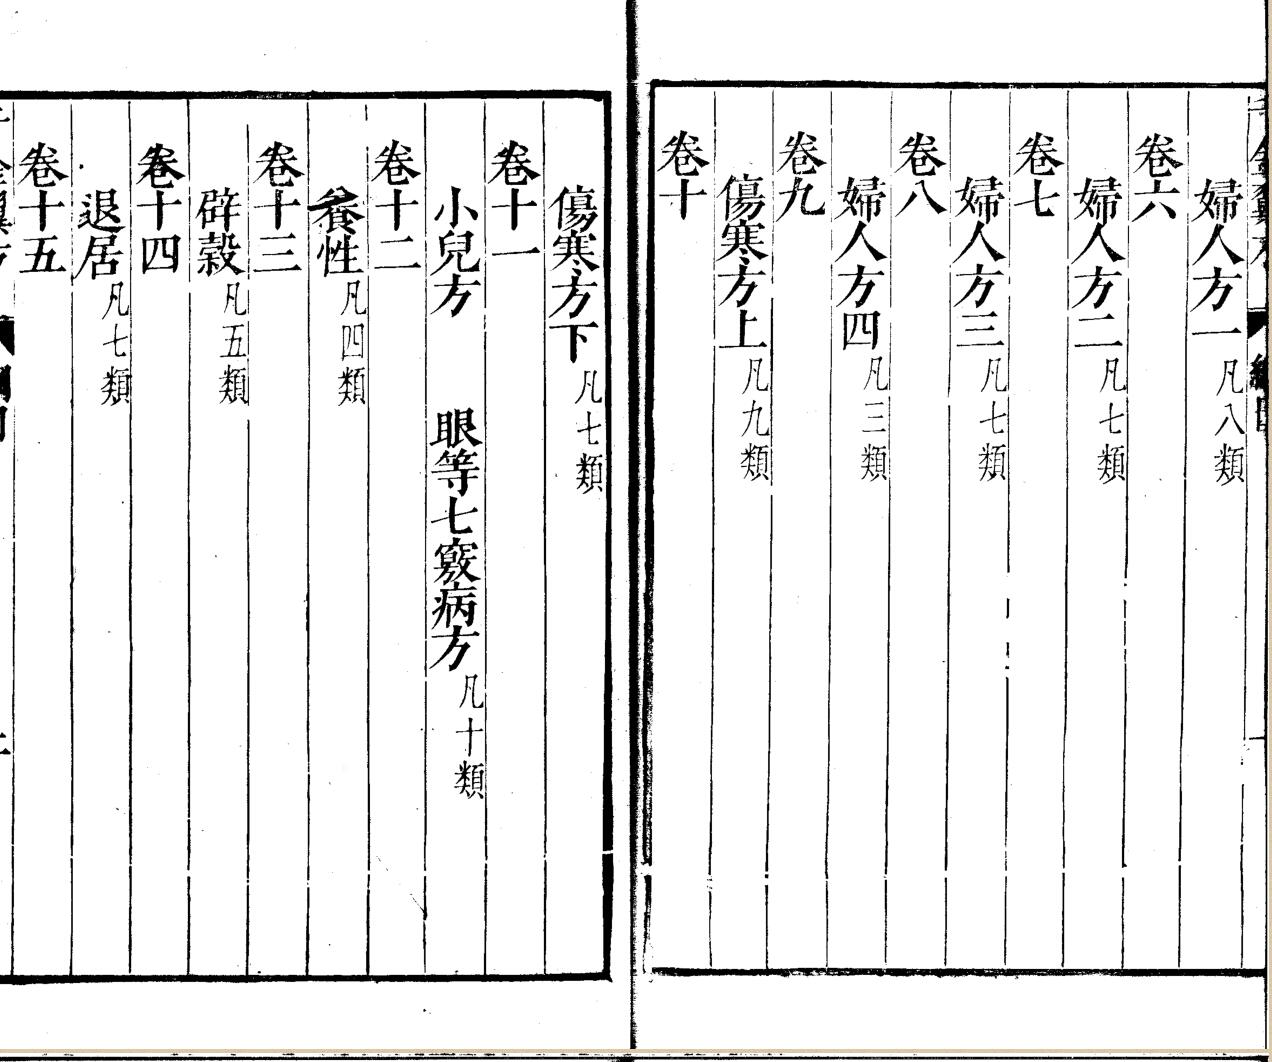 婦人方一凡八類
卷六
婦人方二凡七類
卷七
婦人方三凡七類
卷八
婦人方四凡三類
卷九
傷寒方上凡九類
卷十
傷寒方下凡七類
卷十一
小兒方　眼等七竅病方凡十類
卷十二
養性凡四類
卷十三
辟榖凡五類
卷十四
退居凡七類
卷十五